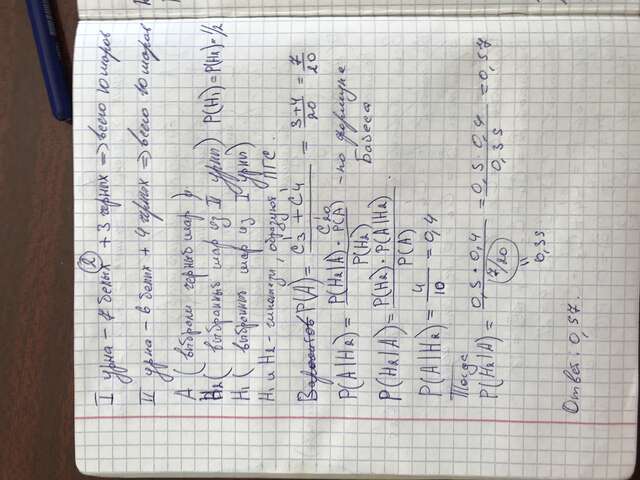 2
I урна - 7 белых + 3 черных => всего 10 шаров
II урна - 6 белых + 4 черных => всего 10 шаров
A (выбрали черный шар)
H₂ (выбранный шар из II урны) P(H₁) = P(H₂) = 1/2
H₁ (выбранный шар из I урны)
H₁ и H₂ - гипотезы, образуют ПГС.
P(A) = (C₃¹ + C₄¹) / C₂₀¹ = (3+4)/20 = 7/20
P(A|H₂) = (P(H₂|A) · P(A)) / P(H₂) - по формуле
Байеса
P(H₂|A) = (P(H₂) · P(A|H₂)) / P(A).
P(A|H₂) = 4/10 = 0,4
Тогда
P(H₂|A) = (0,5 · 0,4) / (7/20) = (0,5 · 0,4) / 0,35 = 0,57
"
0,35
Ответ: 0,57.